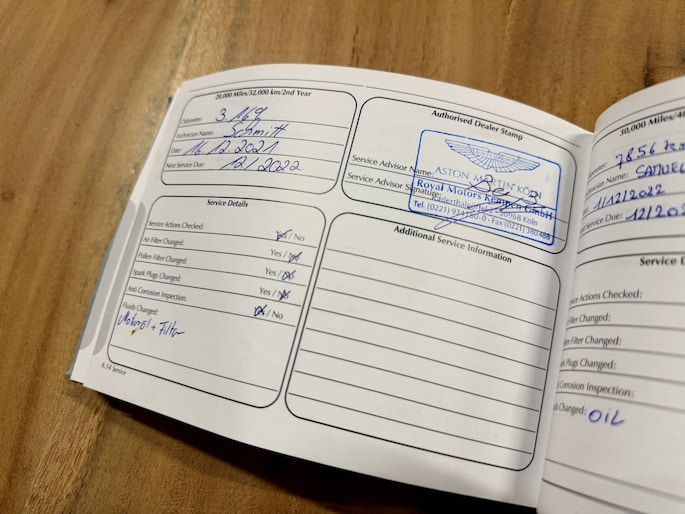 20,000 Miles/32,000 km/2nd Year
Odometer: 3.169
Technician Name: Schmitt
Date: 16.12.2021
Next Service Due: 12/2022
Authorised Dealer Stamp
Service Advisor Name:
Service Advisor Signature:
ASTON MARTIN KÖLN
Royal Motors Kempen GmbH
50968 Köln
Tel. (0221) 934780-0 - Fax (0221) 380488
Service Details
Service Actions Checked: Yes / No
Air Filter Changed: Yes / No
Pollen Filter Changed: Yes / No
Spark Plugs Changed: Yes / No
Anti Corrosion Inspection: Yes / No
Fluids Changed:
Motoröl + Filter
Additional Service Information
A.14 Service
30,000 Miles/
7856 km
Technician Name: SAMUEL
11/12/2022
Service Due: 12/202
Service
Actions Checked:
Filter Changed:
Filter Changed:
Plugs Changed:
Corrosion Inspection:
Changed: OIL